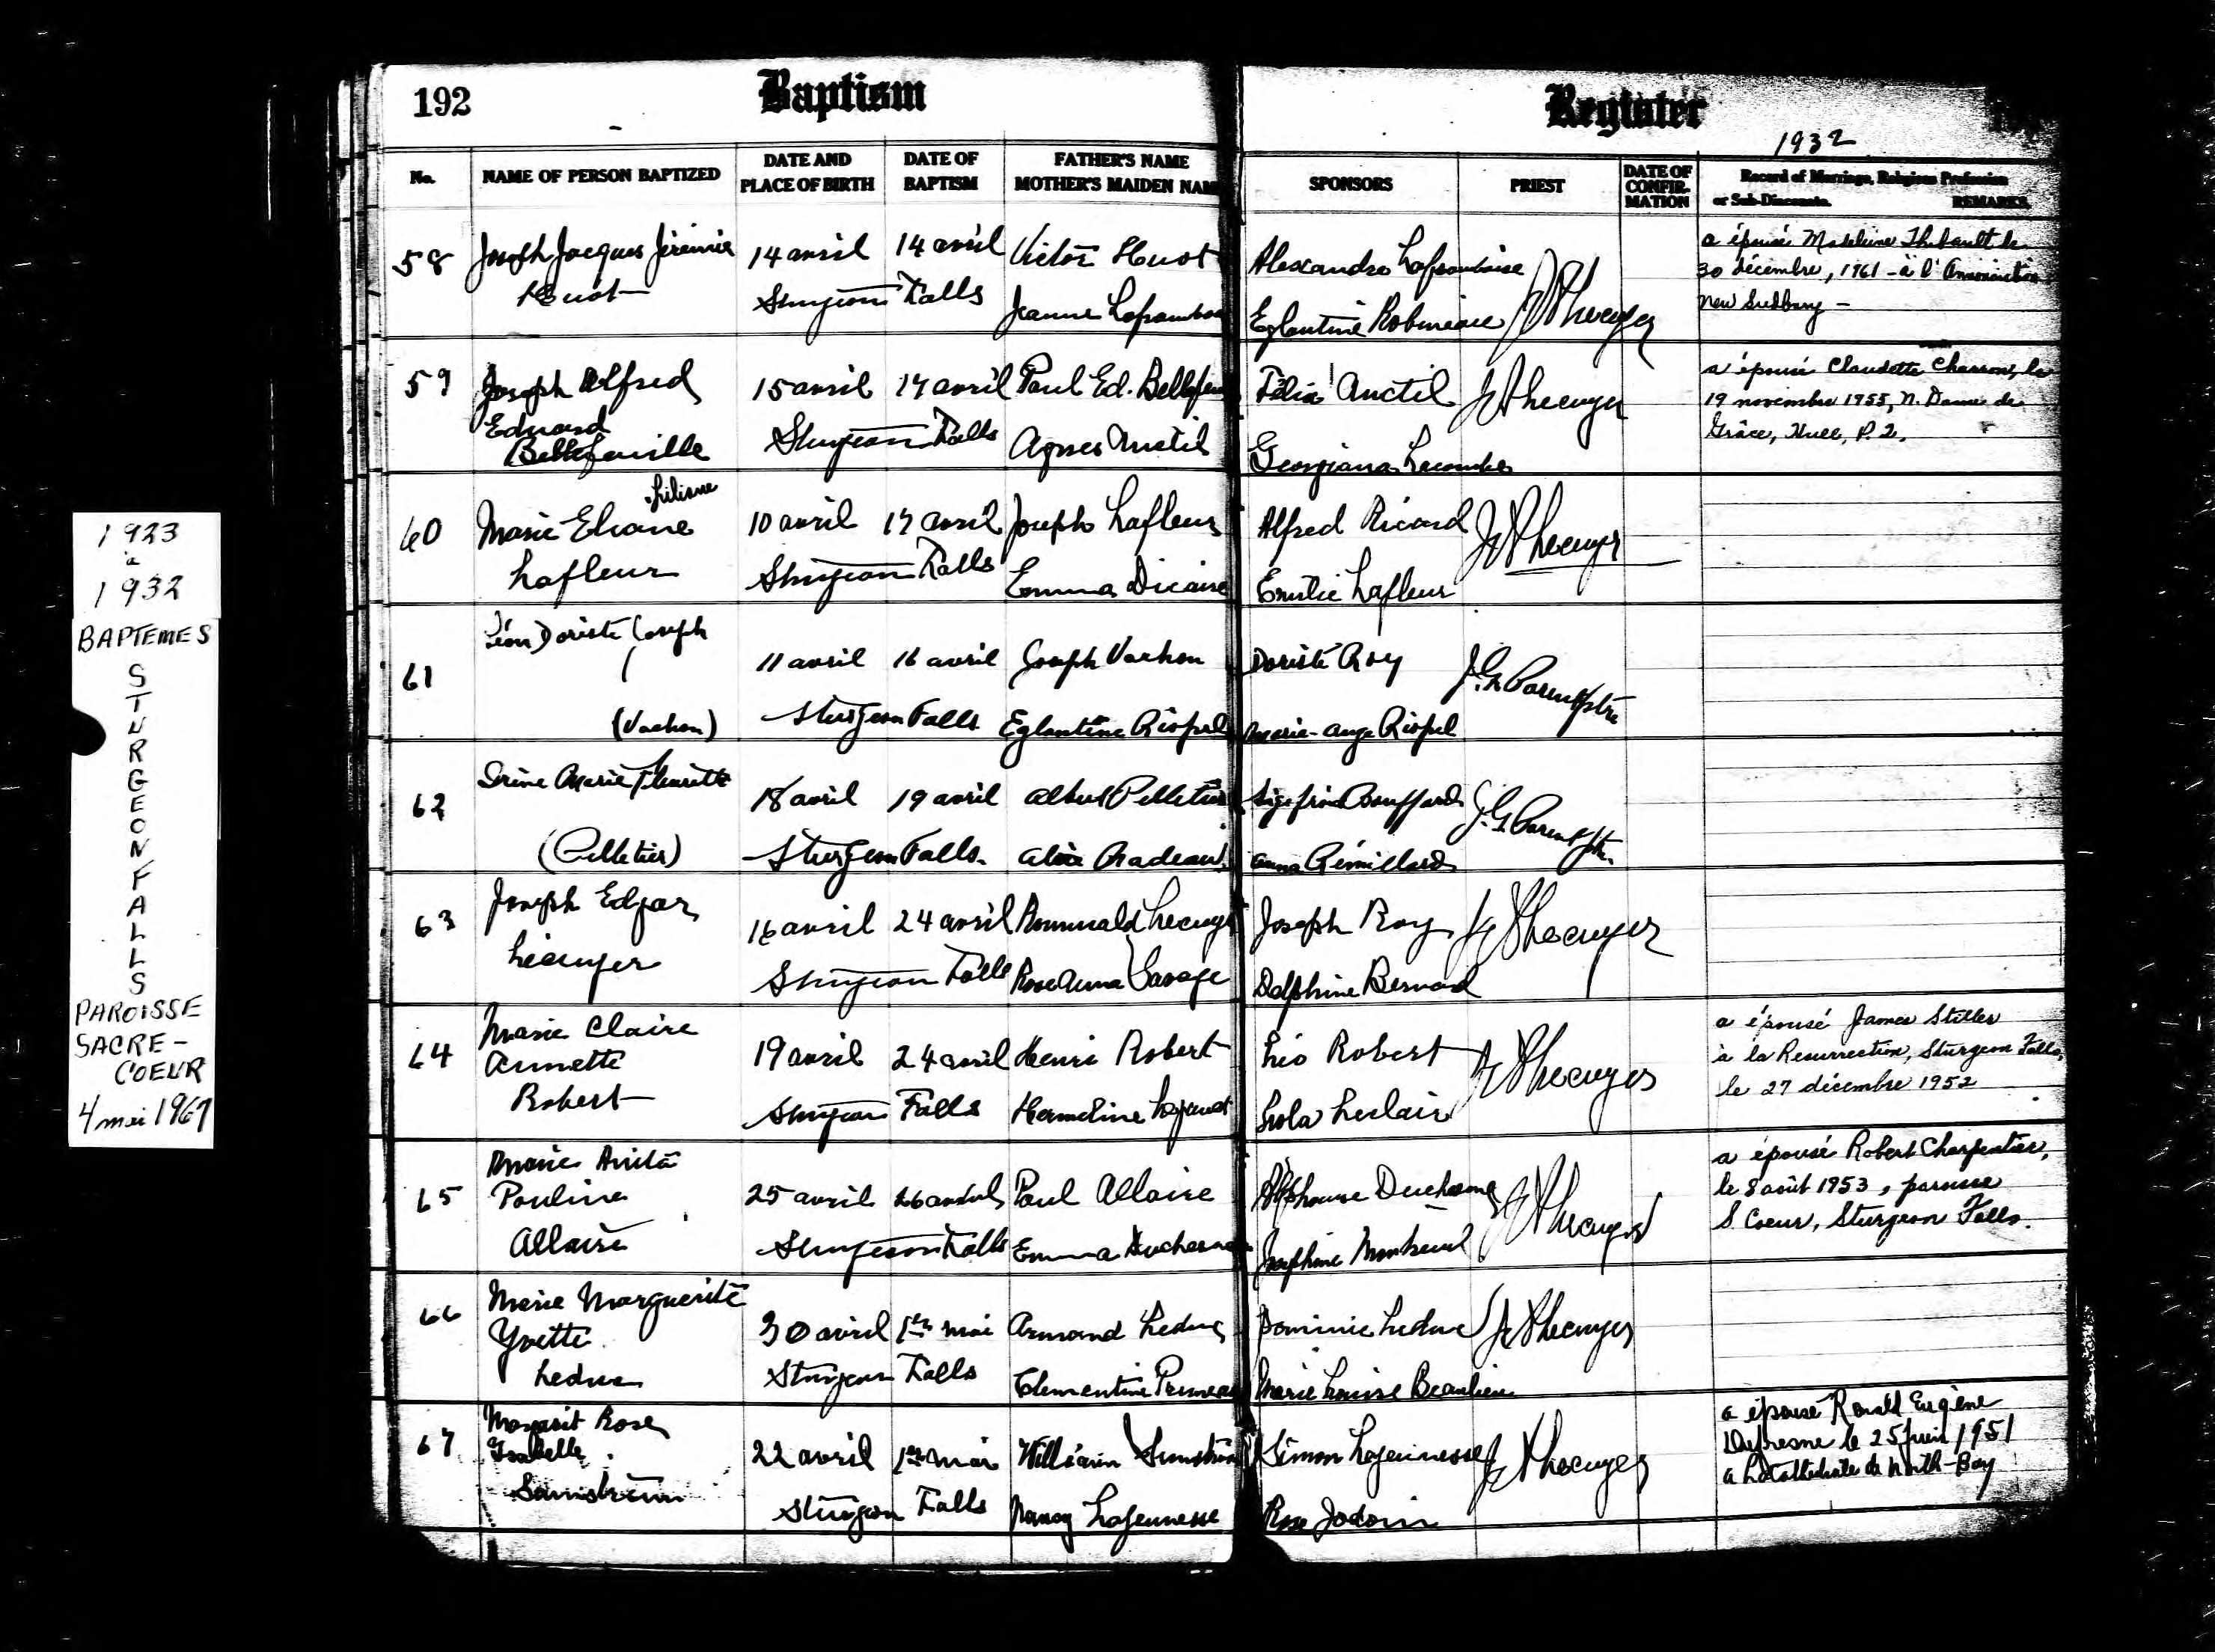 192
Baptism
Register
1932
No.
NAME OF PERSON BAPTIZED
DATE AND
PLACE OF BIRTH
DATE OF
BAPTISM
FATHER'S NAME
MOTHER'S MAIDEN NAME
SPONSORS
PRIEST
DATE OF
CONFIR-
MATION
Record of Marriage, Religious Profession
or Sub-Diaconate. REMARKS.
58
Joseph Jacques Jérémie
Huot
14 avril
Sturgeon Falls
14 avril
Victor Huot
Jeanne Laframboise
Alexandre Laframboise
Eglantine Robineau
a épousé Madeleine Thibault le
30 décembre, 1961 - à l'Annonciation
New Sudbury -
59
Joseph Alfred
Edouard
Bellefeuille
15 avril
Sturgeon Falls
17 avril
Paul Ed. Bellefeuille
Agnes Auctil
Félix Auctil
Georgiana Lacombe
a épousé Claudette Charron, le
19 novembre 1955, N. Dame de
Grâce, Hull, P.Q.
60
Liliane
Marie Eliane
Lafleur
10 avril
Sturgeon Falls
17 avril
Joseph Lafleur
Emma Dicaire
Alfred Ricard
Emilie Lafleur
61
Léon Doriste Joseph
(Vachon)
11 avril
Sturgeon Falls
16 avril
Joseph Vachon
Eglantine Riopel
Doriste Roy
Marie-Ange Riopel
J.G. Parent ptre
62
Marie Fleurette
(Pelletier)
18 avril
Sturgeon Falls.
19 avril
Albert Pelletier
Alice Nadeau
Bouffard
Anna Rémillard
J.G. Parent ptre
63
Joseph Edgar
Lécuyer
16 avril
Sturgeon Falls
24 avril
Romuald Lécuyer
Rose Anna Savage
Joseph Roy
Delphine Bernard
Lécuyer
64
Marie Claire
Annette
Robert
19 avril
Sturgeon Falls
24 avril
Henri Robert
Hermeline
Léo Robert
Leclair
Lécuyer
a épousé James Stiller
à la Resurrection, Sturgeon Falls,
le 27 décembre 1952
65
Marie Anita
Pauline
Allaire
25 avril
Sturgeon Falls
26 avril
Paul Allaire
Emma Duchesne
Alphonse Duchesne
Josephine Montreuil
a épousé Robert Charpentier,
le 8 août 1953, paroisse
S. Coeur, Sturgeon Falls.
66
Marie Marguerite
Yvette
Leduc
30 avril
Sturgeon Falls
1er mai
Armand Leduc
Clementine Pruneau
Dominic Leduc
Marie Louise Beaulieu
Lécuyer
67
Margarit Rose
Isabelle
22 avril
Sturgeon Falls
1er mai
William
Nancy Lajeunesse
Simon Lajeunesse
Rose Jodoin
Lécuyer
a épousé Ronald Eugène
Dufresne le 25 juin 1951
a la Cathédrale de North-Bay
1923
à
1932
BAPTEMES
S
T
U
R
G
E
O
N
F
A
L
L
S
PAROISSE
SACRE-
COEUR
4 mai 1967